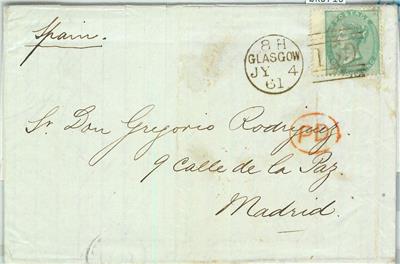 Spain.
8 H
GLASGOW
JY 4
61
159
Sr. Don Gregorio Rodriguez.
PD
9 calle de la Paz.
Madrid